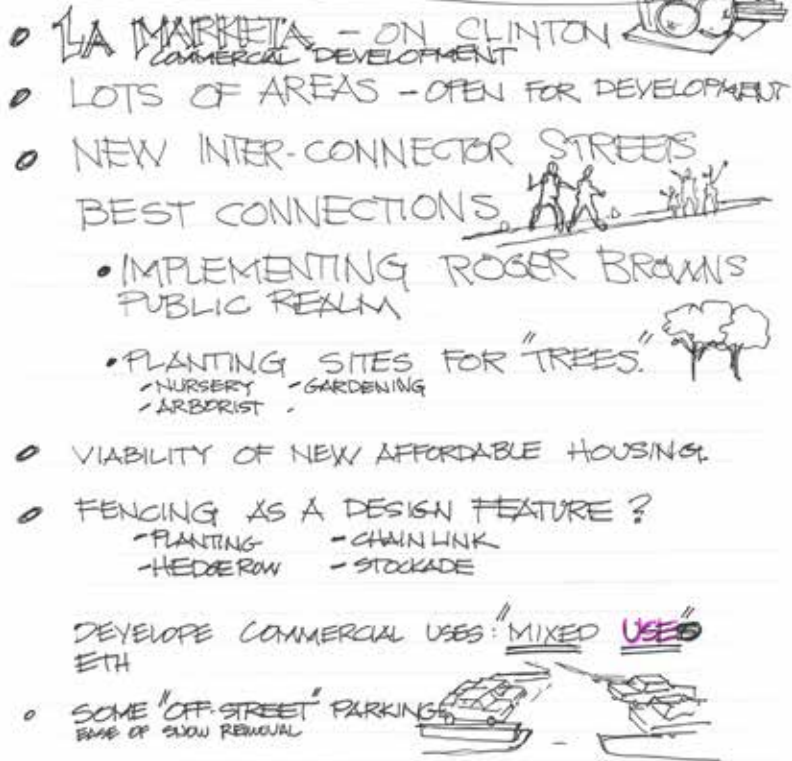 LA MARKETA - ON CLINTON
COMMERCIAL DEVELOPMENT
LOTS OF AREAS - OPEN FOR DEVELOPMENT
NEW INTER-CONNECTOR STREETS
BEST CONNECTIONS
• IMPLEMENTING ROGER BROWNS
PUBLIC REALM
• PLANTING SITES FOR "TREES."
- NURSERY - GARDENING
- ARBORIST
VIABILITY OF NEW AFFORDABLE HOUSING.
FENCING AS A DESIGN FEATURE?
- PLANTING - CHAIN LINK
- HEDGE ROW - STOCKADE
DEVELOPE COMMERCIAL USES: "MIXED USE"
ETH
SOME "OFF-STREET" PARKING
EASE OF SNOW REMOVAL